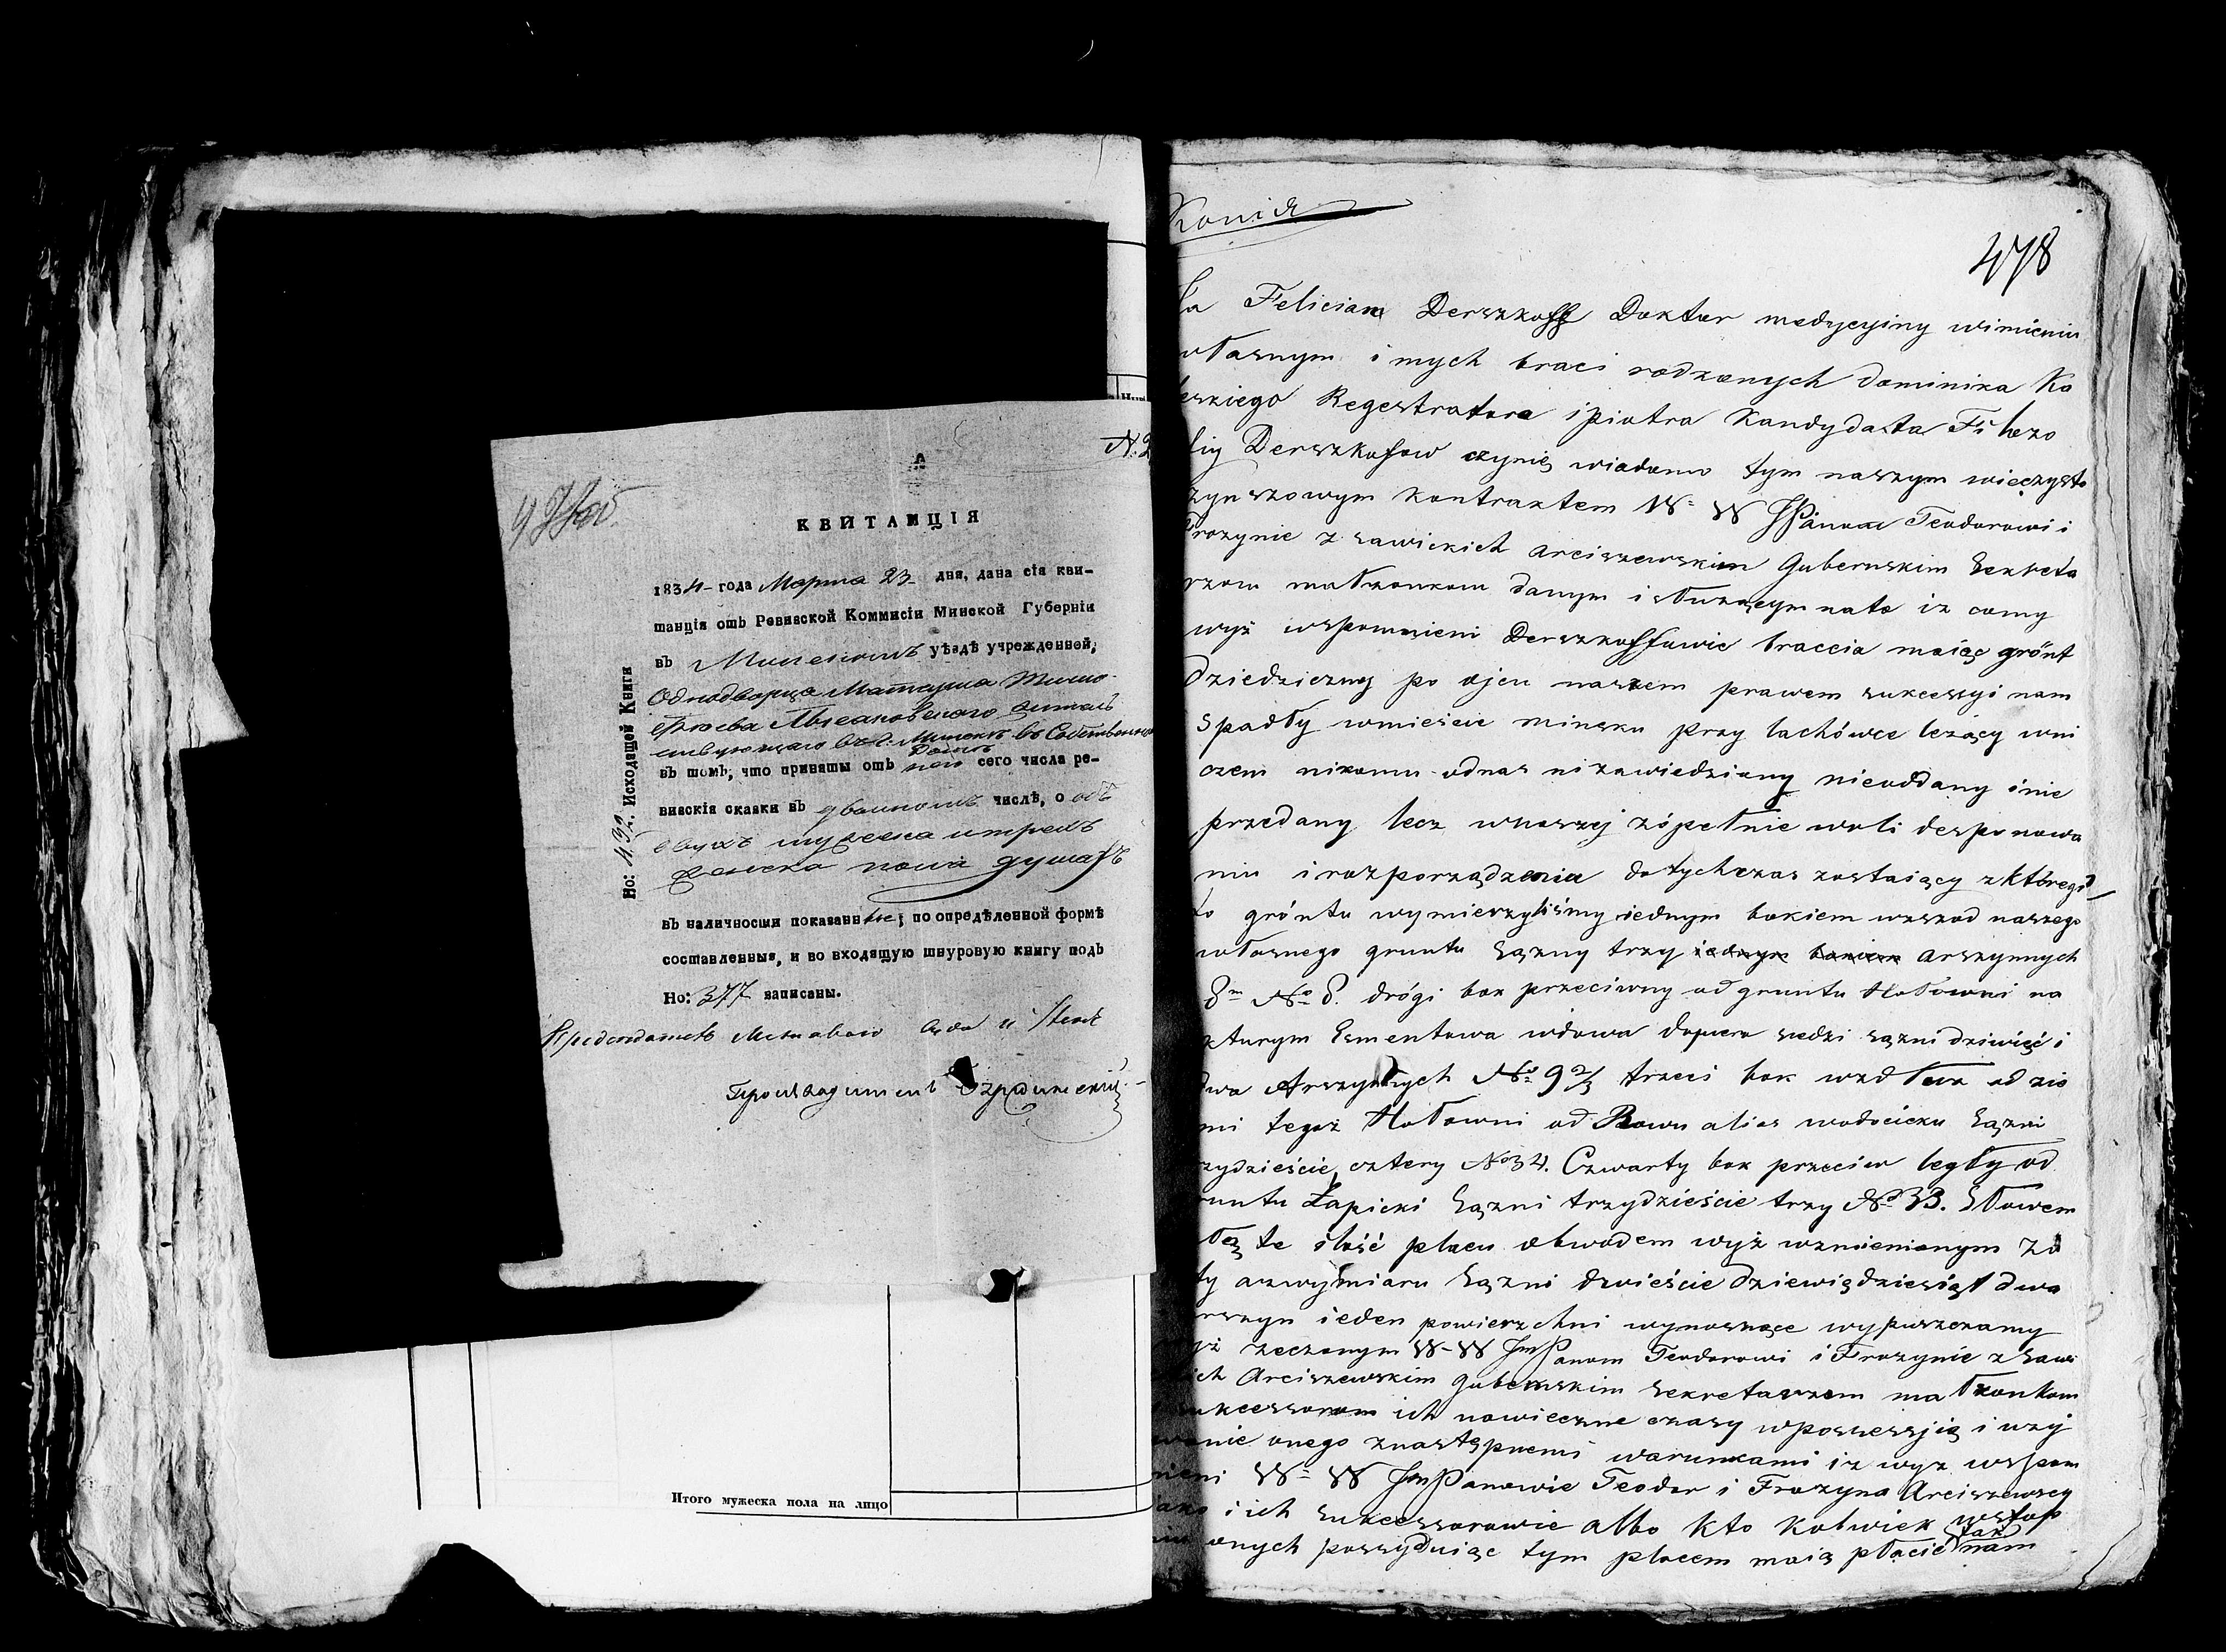 КВИТАНЦІЯ
1834 года Марта 23 дня, дана сія кви-
танція отъ Ревизской Коммисіи Минской Губерніи
въ Минскомъ уѣздѣ учрежденной,
Однодворца Матвуша Тимо-
въ Собственномъ
Домѣ
въ томъ, что приняты отъ него сего числа ре-
визскія сказки въ двойномъ числѣ, о
двухъ мужеска и трехъ
женска пола душахъ
въ наличности показанные; по опредѣленной формѣ
составленныя, и во входящую шнуровую книгу подъ
Но: 377 записаны.
Но: 492. Исходящей Книги
Итого мужеска пола на лицо
Копія
478
Ja Felician Derszkoff Doktor medycyiny wimieniu
własnym i mych braci rodzonych Dominika Ko
leskiego Regestratora i piotra Kandydata Filozo
fiy Derszkofow czynię wiadomo tym naszym wieczysto
czynszowym Kontraktem W W JPanom Teodorowi i
Frozynie z sawickich arciszewskim Gubernskim Sekreta
rzom małżonkom danym i służącym na to iz comy
wyż wspomnieni Derszkoffowie braccia maiąc grónt
Dziedziczny po ojcu naszem prawem sukcessyi nam
spadły wmieście minsku przy lachówce leżący wni
czem nikomu odnas nizawiedziony nieoddany inie
przedany lecz wnaszej zópełnie woli desponowa
niu i rozporządzenia dotychczas zostaiący zktórego
to gróntu wymierzyliśmy iednym bokiem wzszod naszego
własnego gruntu Sążny trzy iednym bokiem arszynnych
8m No 8. drógi bok przeciwny od gruntu Hołowni na
kturym Esmentowa wdowa dopiero siedzi sążni dziwięć i
dwa Arszynnych No 9 2/3 trzeci bok wzdłuz od zie
mi tegoz Hołowni od Rowu alias wodocieku Sążni
trzydzieście cztery No 34. Czwarty bok przeciw legły od
gruntu Łapicki Sążni trzydzieście trzy No 33. Słowem
całą te ilość placu obwodem wyż wzmienionym za
ty a zwymiaru Sążni dwieście dziewiędziesiąt dwa
arszyn ieden powierzchni wynoszące wypuszczamy
wyż rzeczonym W-W JmPanom Teodorowi i Frozynie z Sawi
ckich Arciszewskim gubernskim sekretarzem małżonkom
sukcessorom ich nawieczne czasy wpossessją i uzy
wanie onego znastępnemi warunkami iz wyz wspom
nieni W W JmPanowie Teodor i Frozyna Arciszewscy
jako i ich sukcessorowie albo kto kolwiek wstop
tak
onych possyduiąc tym placem maią płacić nam